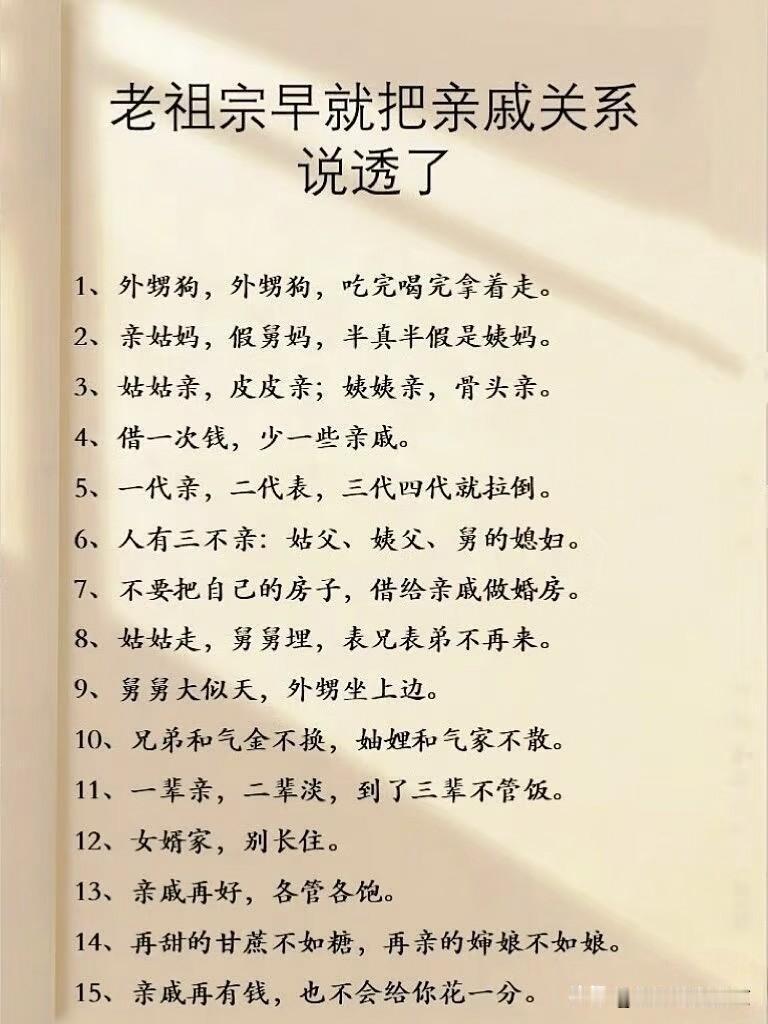 老祖宗早就把亲戚关系
说透了
1、外甥狗，外甥狗，吃完喝完拿着走。
2、亲姑妈，假舅妈，半真半假是姨妈。
3、姑姑亲，皮皮亲；姨姨亲，骨头亲。
4、借一次钱，少一些亲戚。
5、一代亲，二代表，三代四代就拉倒。
6、人有三不亲：姑父、姨父、舅的媳妇。
7、不要把自己的房子，借给亲戚做婚房。
8、姑姑走，舅舅埋，表兄表弟不再来。
9、舅舅大似天，外甥坐上边。
10、兄弟和气金不换，妯娌和气家不散。
11、一辈亲，二辈淡，到了三辈不管饭。
12、女婿家，别长住。
13、亲戚再好，各管各饱。
14、再甜的甘蔗不如糖，再亲的婶娘不如娘。
15、亲戚再有钱，也不会给你花一分。